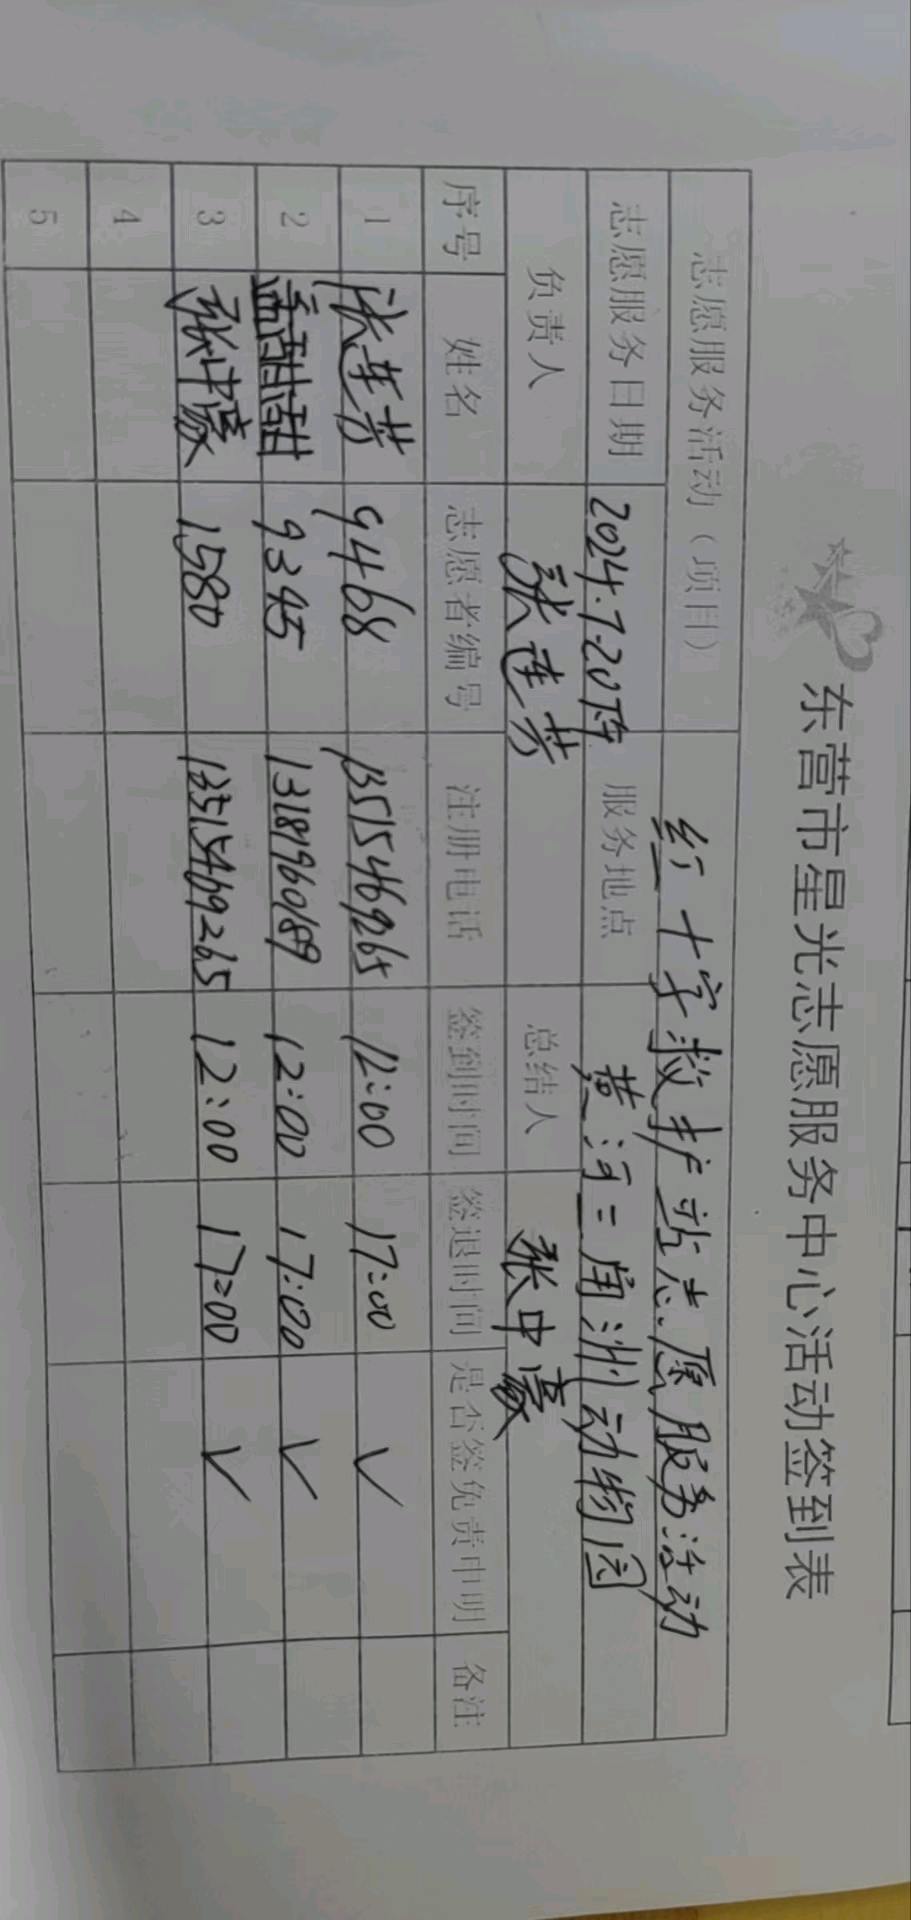 东营市星光志愿服务中心活动签到表
志愿服务活动（项目） 红十字救护站志愿服务活动
志愿服务日期 2024.7.20下午 服务地点 黄河三角洲动物园
负责人 张连芳 总结人 张中豪
序号 姓名 志愿者编号 注册电话 签到时间 签退时间 是否签免责申明 备注
1 张连芳 9468 13515469265 12:00 17:00 ✓
2 孟甜甜 9345 13181960189 12:00 17:00 ✓
3 张中豪 1580 13515469265 12:00 17:00 ✓
4
5